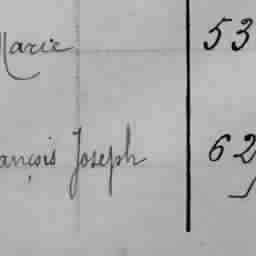 Marie 53
ançois Joseph 62